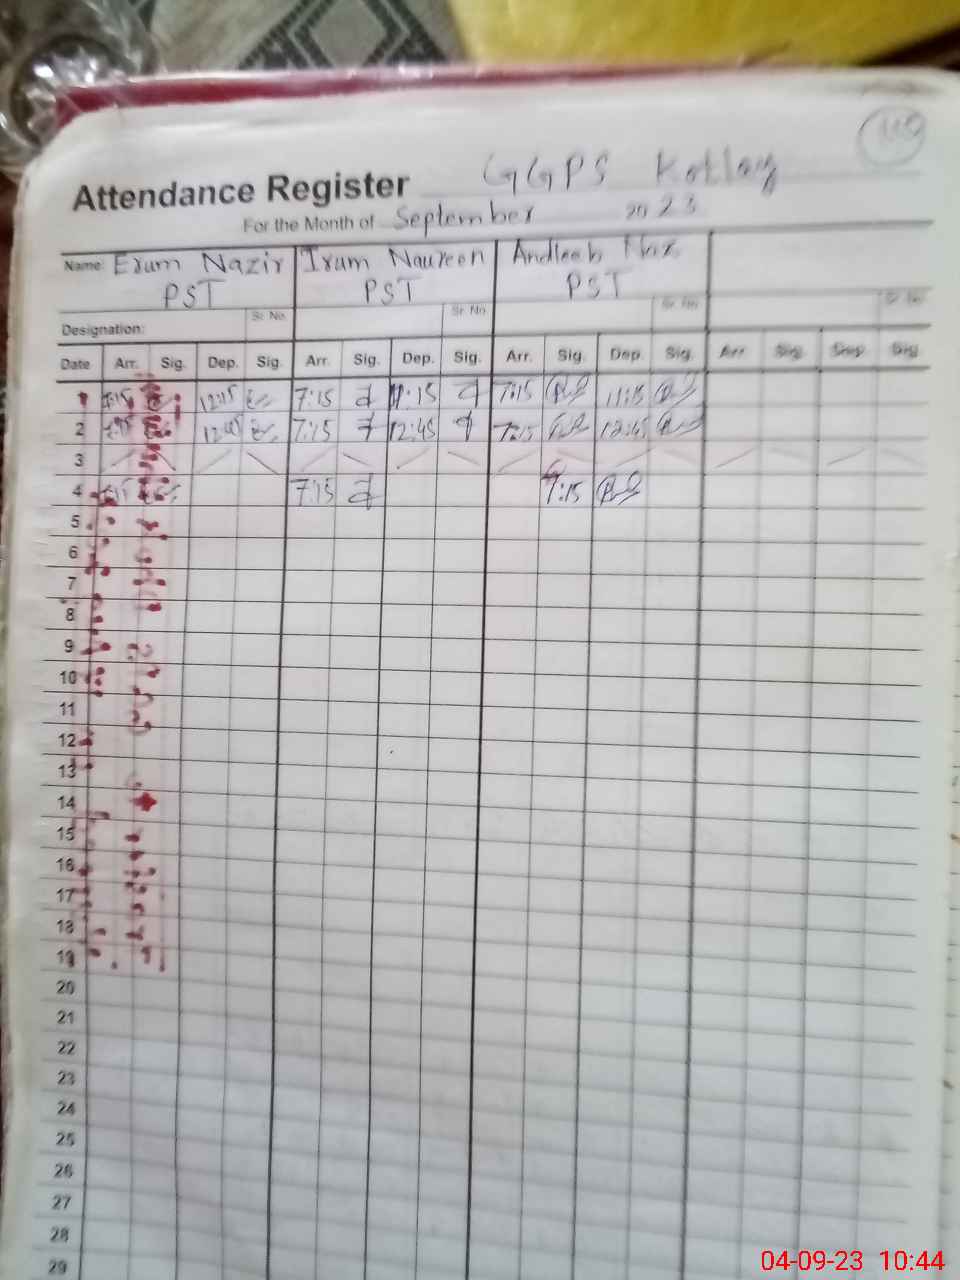 Attendance Register GGPS Kotlay
For the Month of September 2023
Name: Erum Nazir Irum Naureen Andleeb Naz
PST PST PST
Sr. No. Sr. No. Sr. No. Sr. No.
Designation:
Date Arr. Sig. Dep. Sig. Arr. Sig. Dep. Sig. Arr. Sig. Dep. Sig. Arr. Sig. Dep. Sig.
1 7:15 12:15 7:15 11:15 7:15 11:15
2 7:15 12:45 7:15 12:45 7:15 12:45
3
4 7:15 7:15 7:15
5
6
7
8
9
10
11
12
13
14
15
16
17
18
19
20
21
22
23
24
25
26
27
28
29
04-09-23 10:44